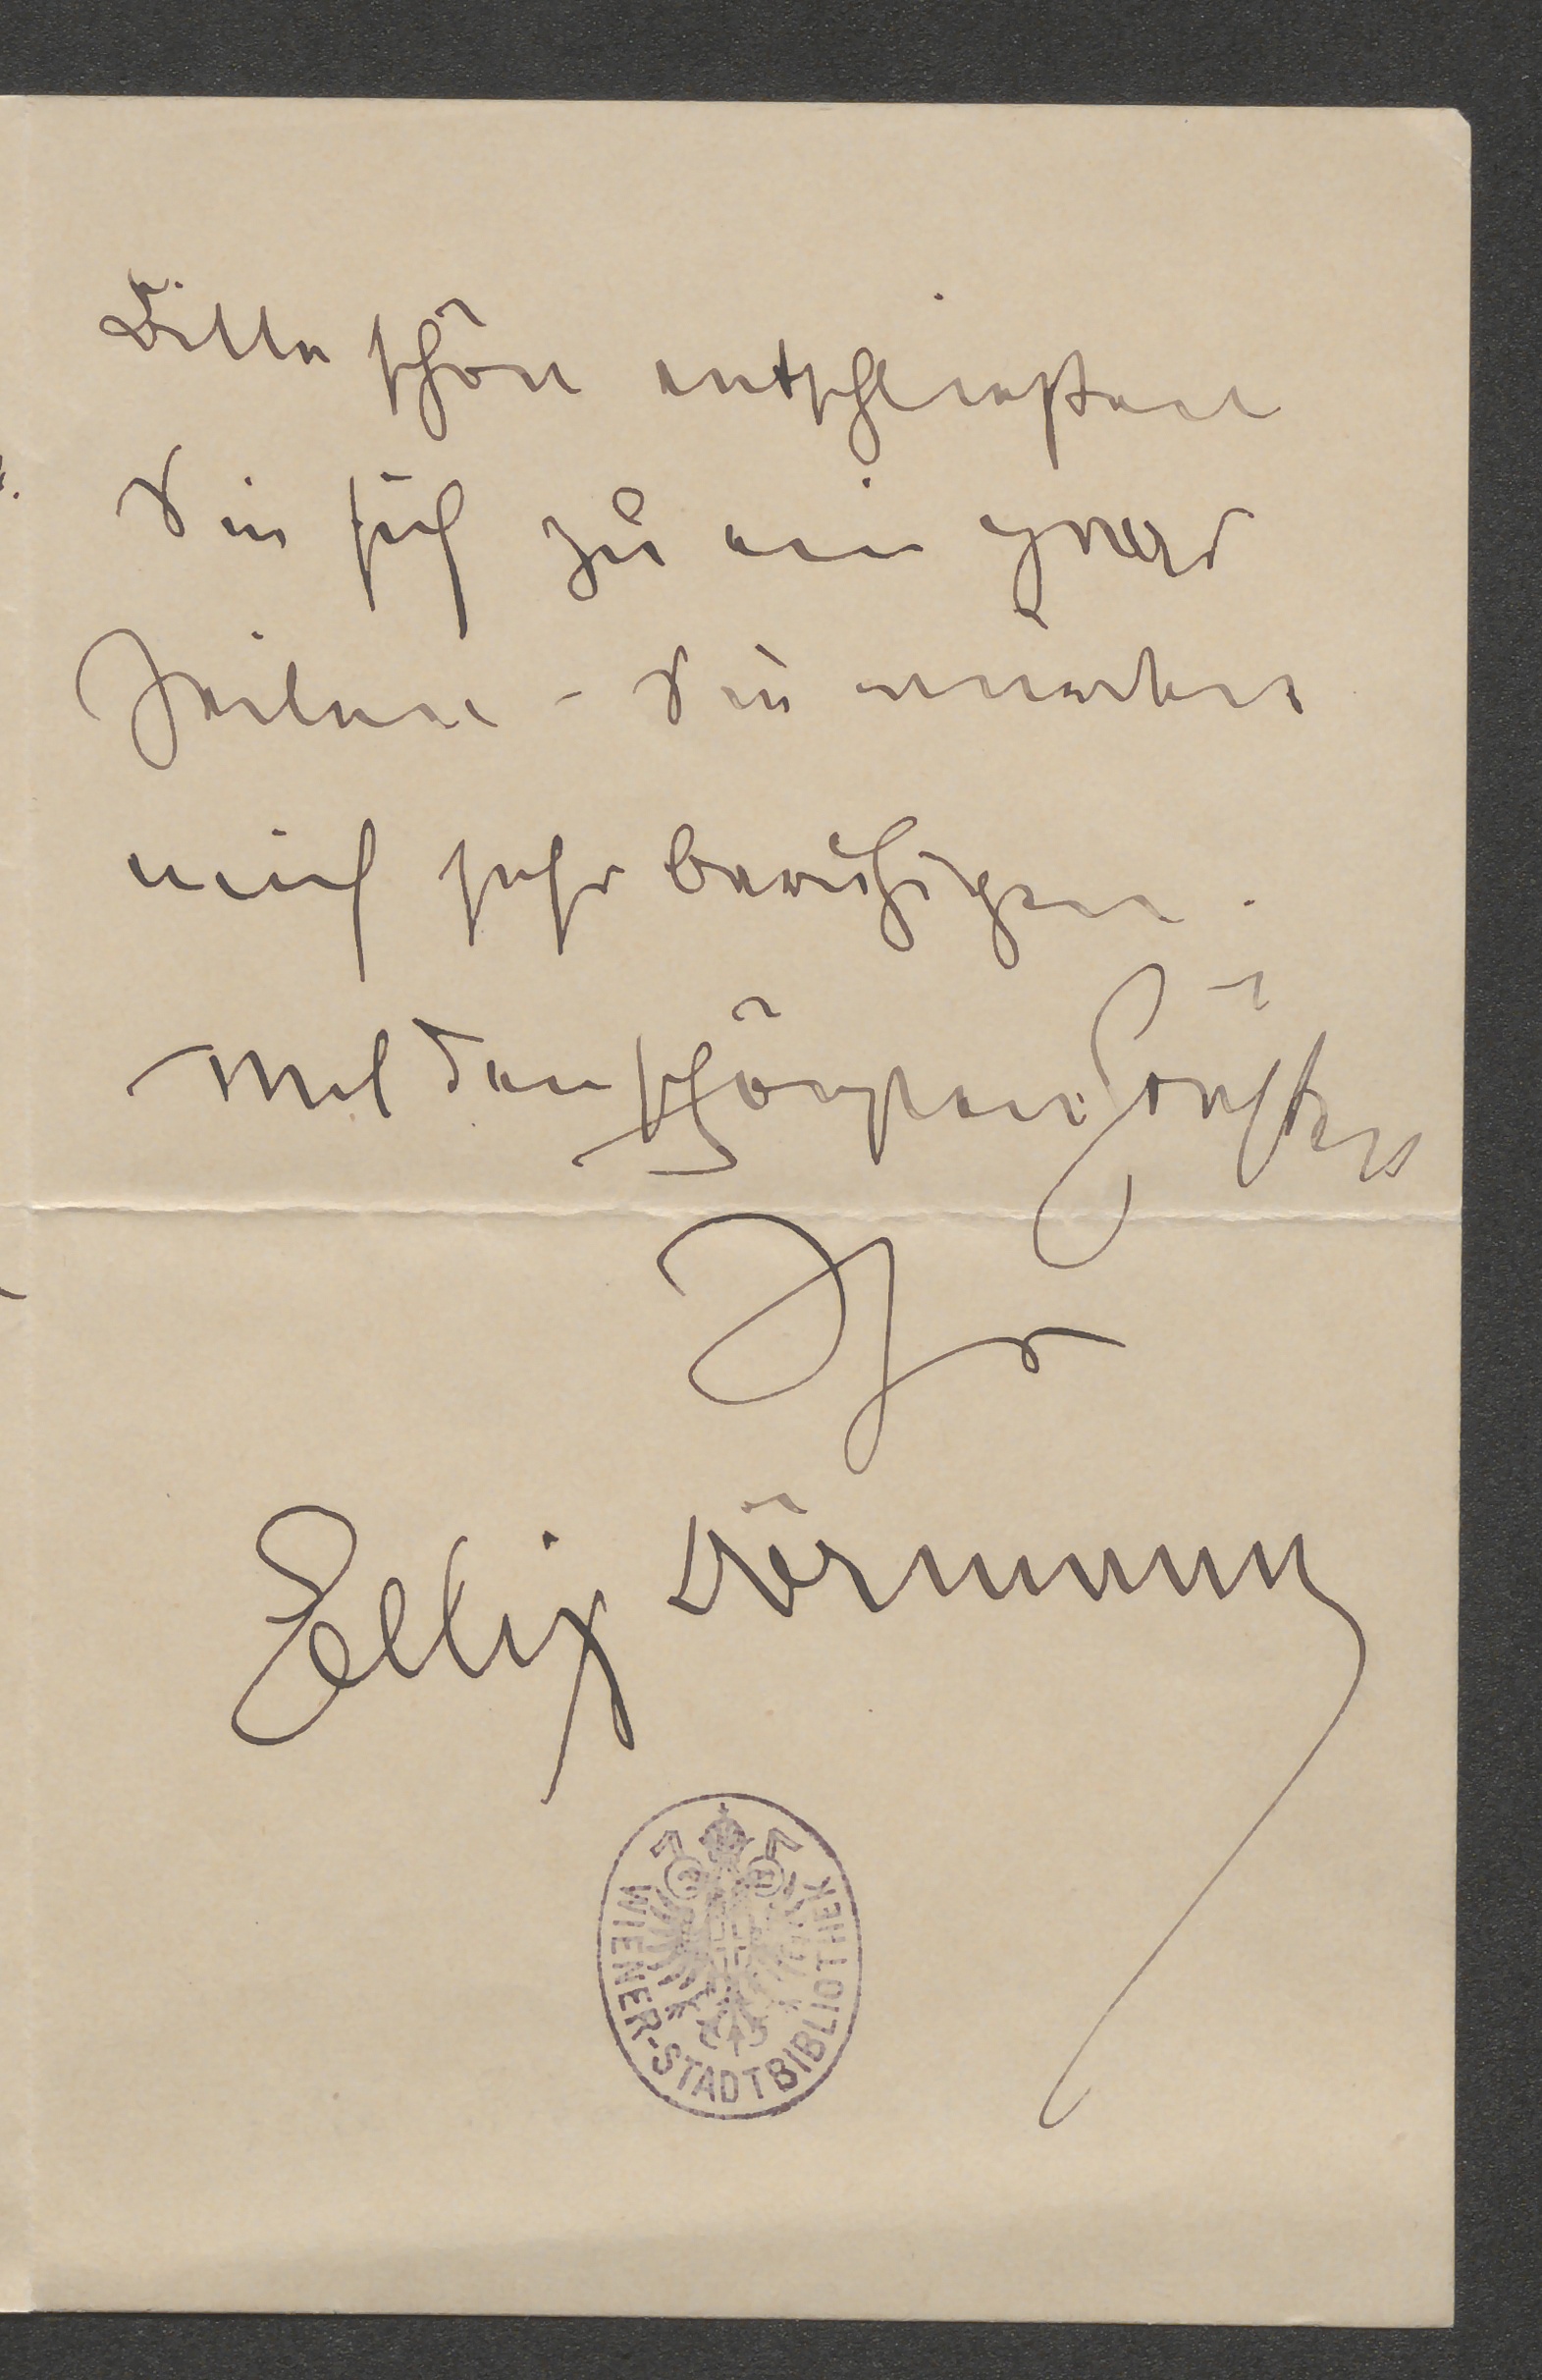 Bitte schön entschließen
Sie sich zu ein paar
Zeilen – Sie würden
mich sehr beruhigen.
Mit den schönsten Grüßen
Ihr
Felix Dörmann
WIENER-STADTBIBLIOTHEK